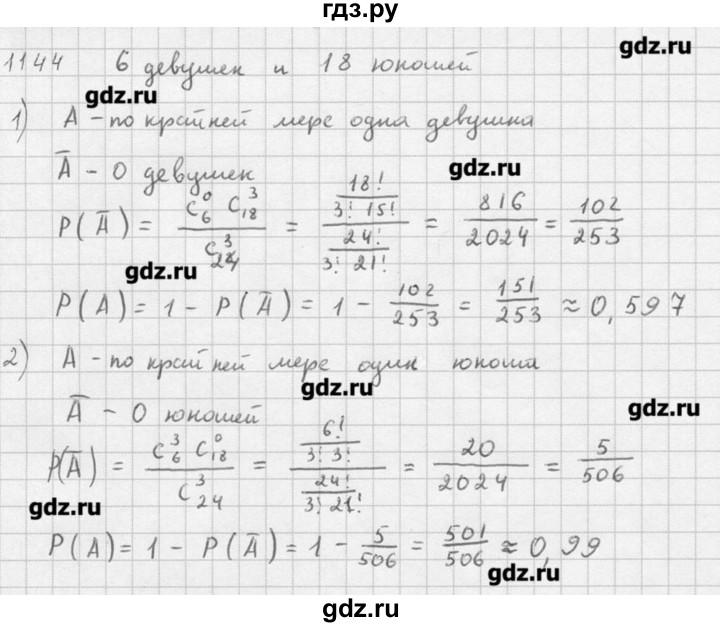 гдз.ру
gdz.ru
1144 6 девушек и 18 юношей
gdz.ru
1) A - по крайней мере одна девушка
Ā - 0 девушек
gdz.ru
P(Ā) = C₆⁰ C₁₈³ / C₂₄³ = (18! / 3! 15!) / (24! / 3! 21!) = 816/2024 = 102/253
gdz.ru
P(A) = 1 - P(Ā) = 1 - 102/253 = 151/253 ≈ 0,597
2) A - по крайней мере один юноша
gdz.ru
Ā - 0 юношей
gdz.ru
P(Ā) = C₆³ C₁₈⁰ / C₂₄³ = (6! / 3! 3!) / (24! / 3! 21!) = 20/2024 = 5/506
gdz.ru
P(A) = 1 - P(Ā) = 1 - 5/506 = 501/506 ≈ 0,99
gdz.ru
gdz.ru